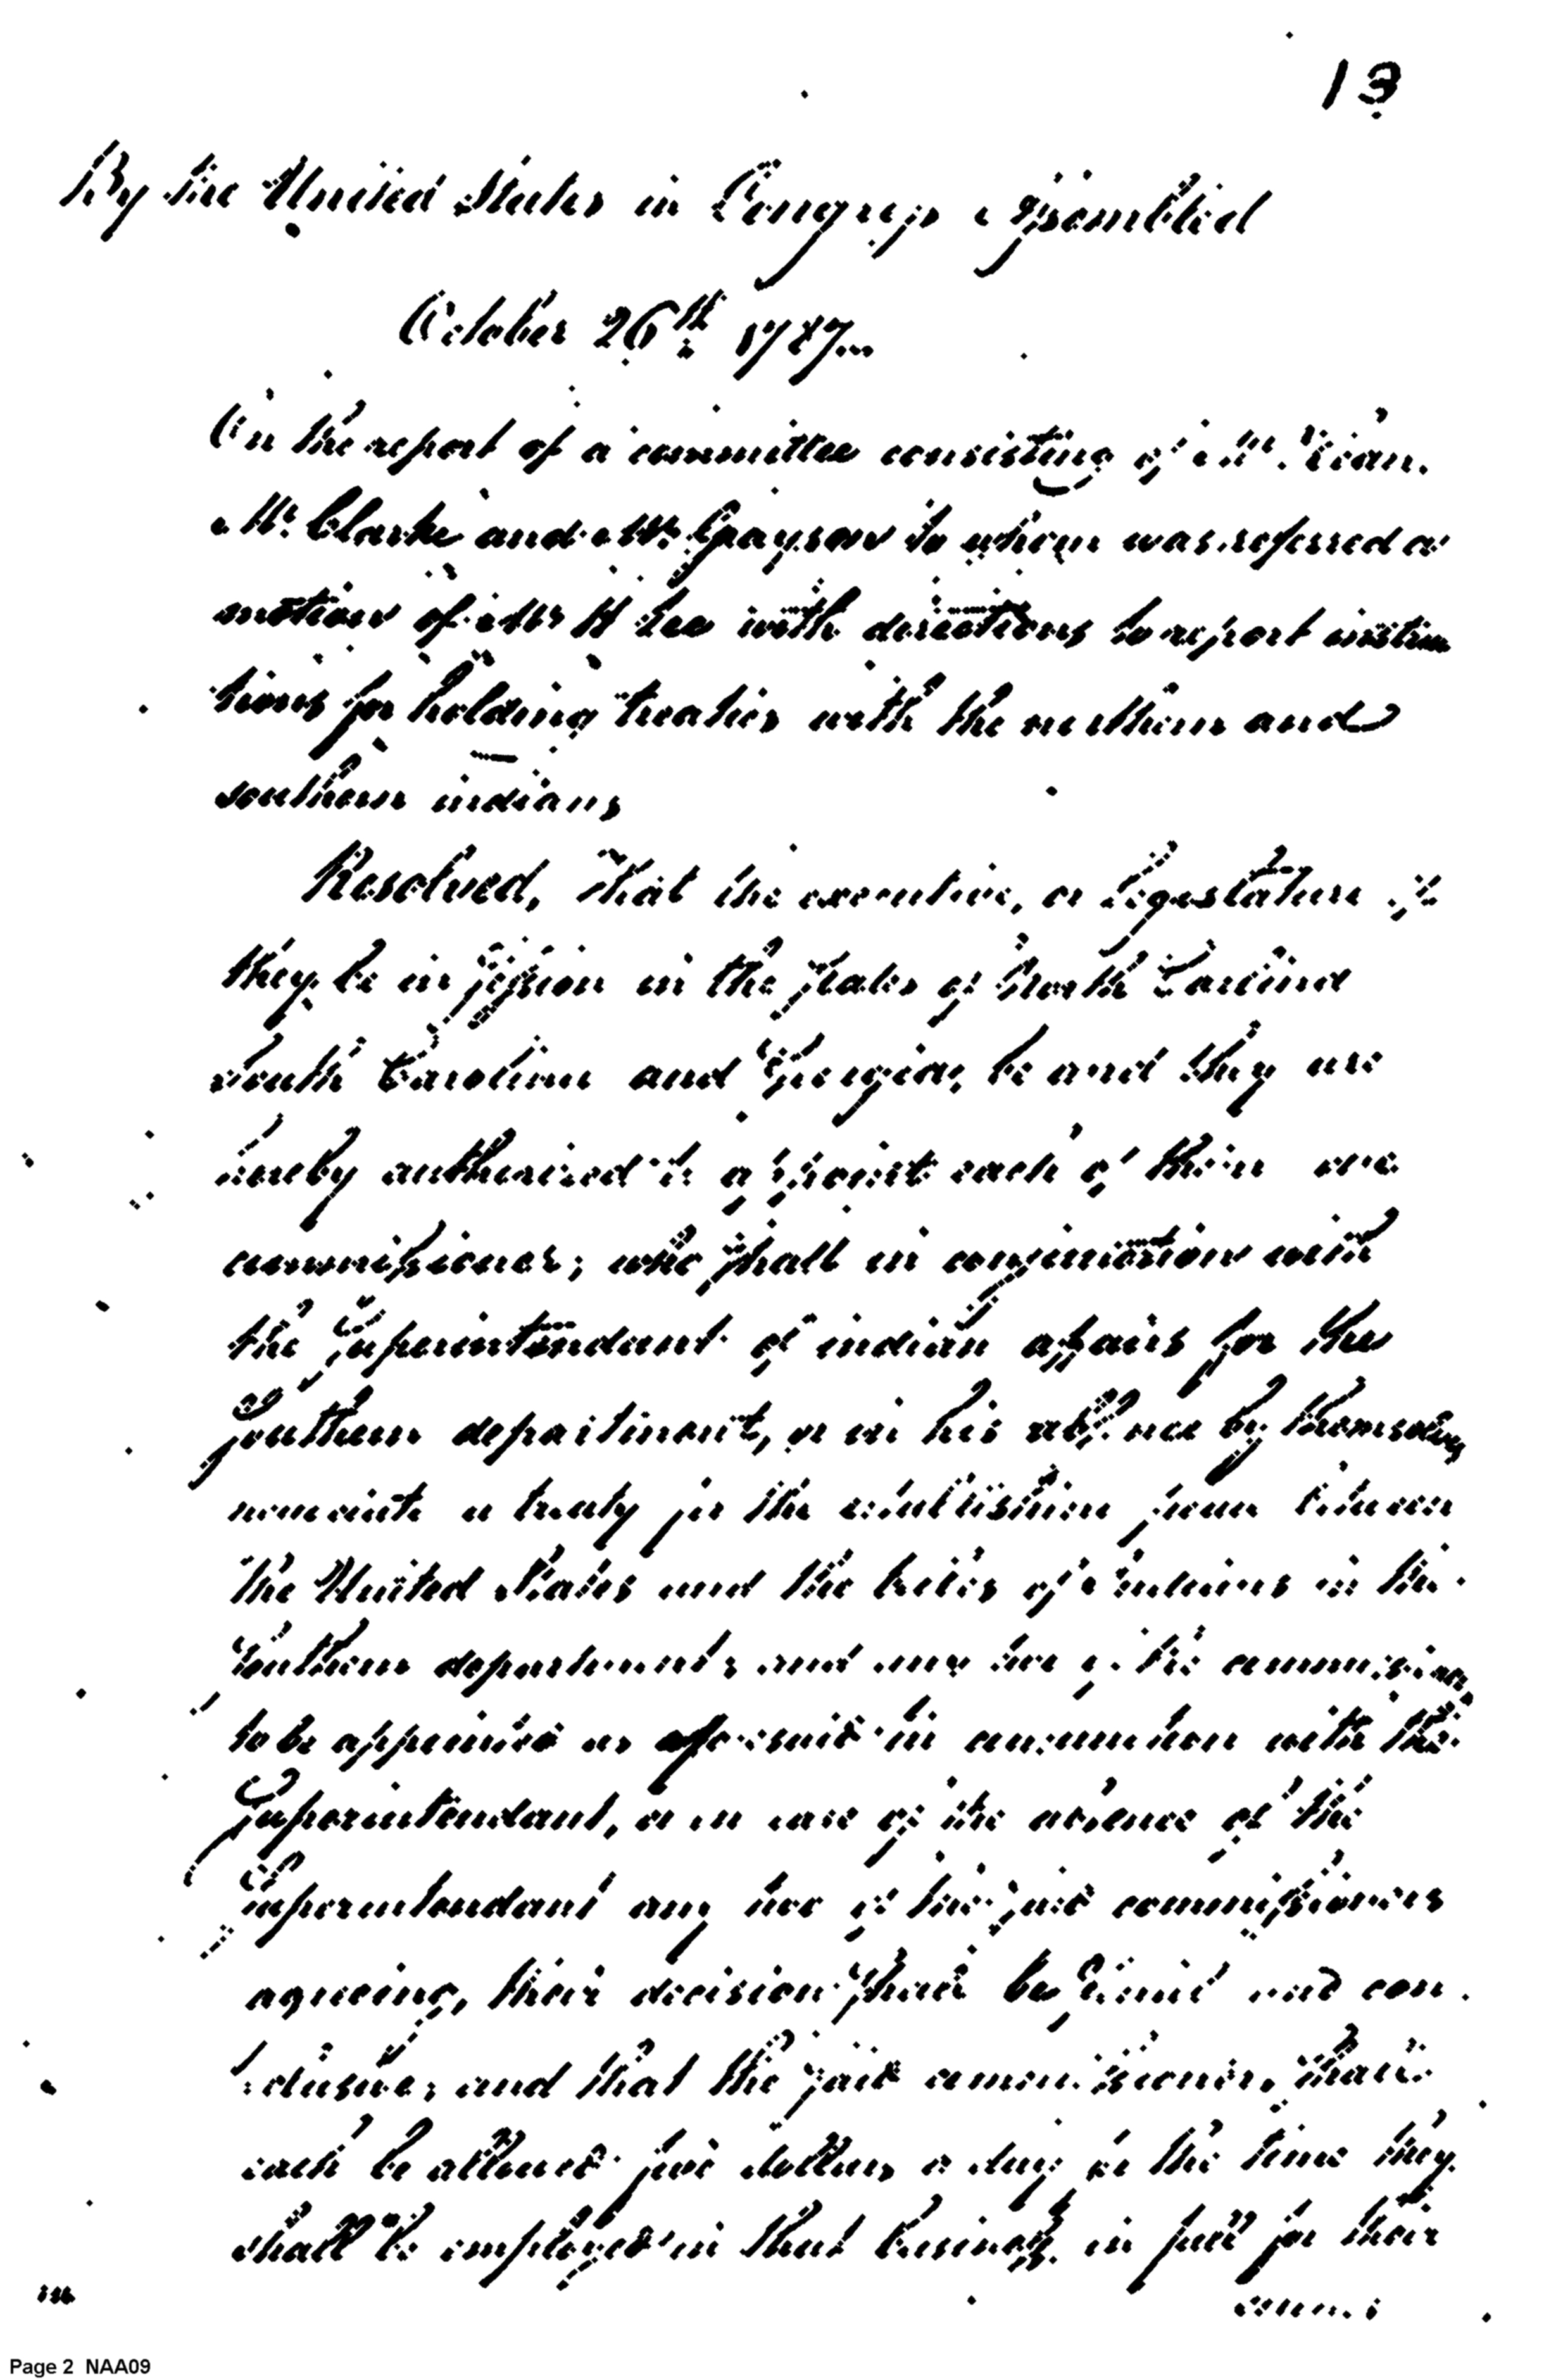 13
By the United States in Congress Assembled
October 26th 1787
On the report of a committee consisting of Mr. Kean.
Mr. Clarke and Mr. Grayson to whom was referred a
motion of Mr H Lee with directions to report instruc
tions for holding treaties with the northern and
southern indians
Resolved, That the executive, or Legislature if
they be in session in the States of North Carolina
South Carolina and Georgia, be and they are
hereby authorised to appoint each of them one
commissioner; who shall in conjunction with
the Superintendant of indian affairs for the
Southern department, or in his absence by themselves
a treaty for the establishing peace between
the United States and the tribes of indians in the
Southern department; and any two of the commissioners
to be appointed as aforesaid in conjunction with the
Superintendant, or in case of the absence of the
Superintendant any two of the said commissioners
agreeing, their decision shall be binding and con
clusive; and that the said commissioners shall
each be allowed five dollars a day for the time they
shall be employed in that business in full for their
Page 2 NAA09